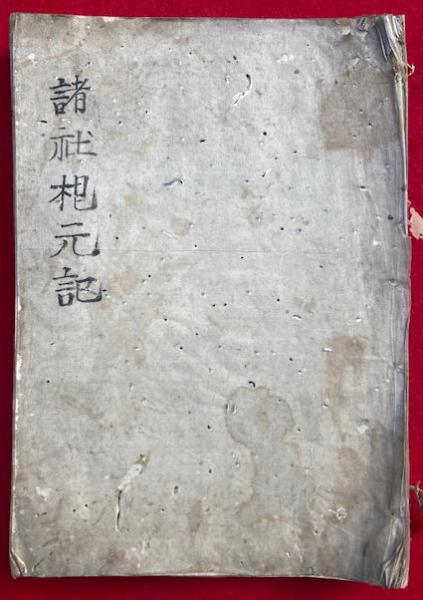 諸社根元記